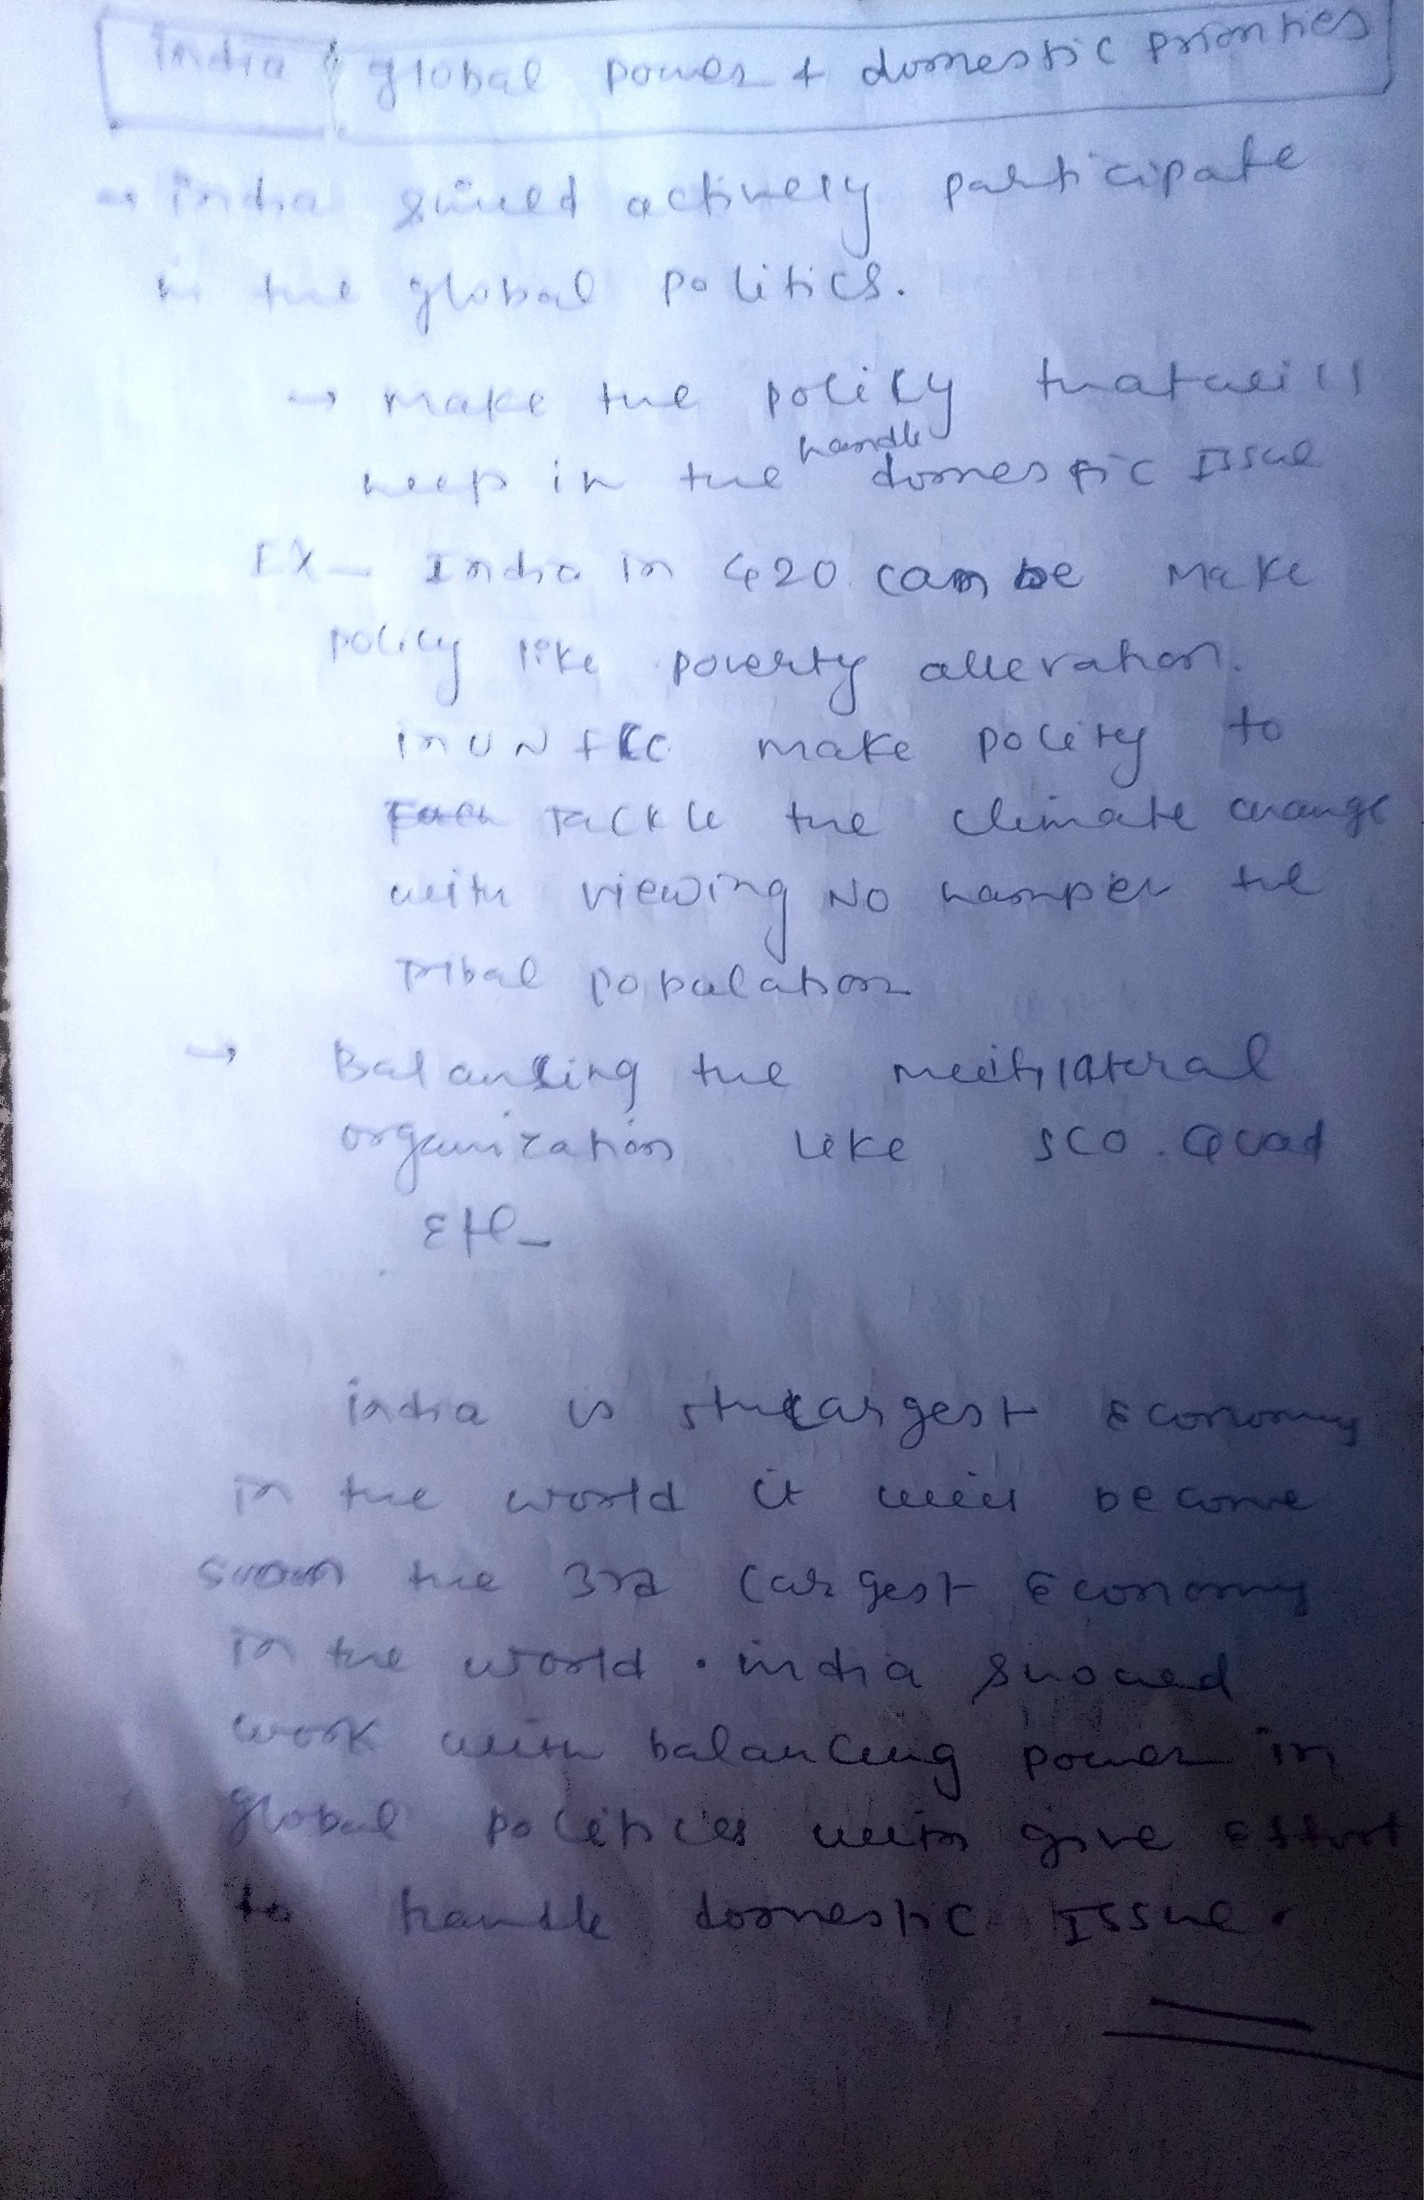 India & global power + domestic priorities
→ india should actively participate
in the global politics.
→ make the policy that will
keep in the handle domestic Issue
EX - India in G20 can be make
policy like poverty allevation.
in UNFCC make policy to
Tackle the climate change
with viewing No hamper the
Tribal population
→ Balancing the multilateral
organization like SCO. Quad
Etc -
india is 5th largest Economy
in the world it will become
soon the 3rd largest Economy
in the world. india should
work with balancing power in
global politics with give Effort
to handle domestic Issue.